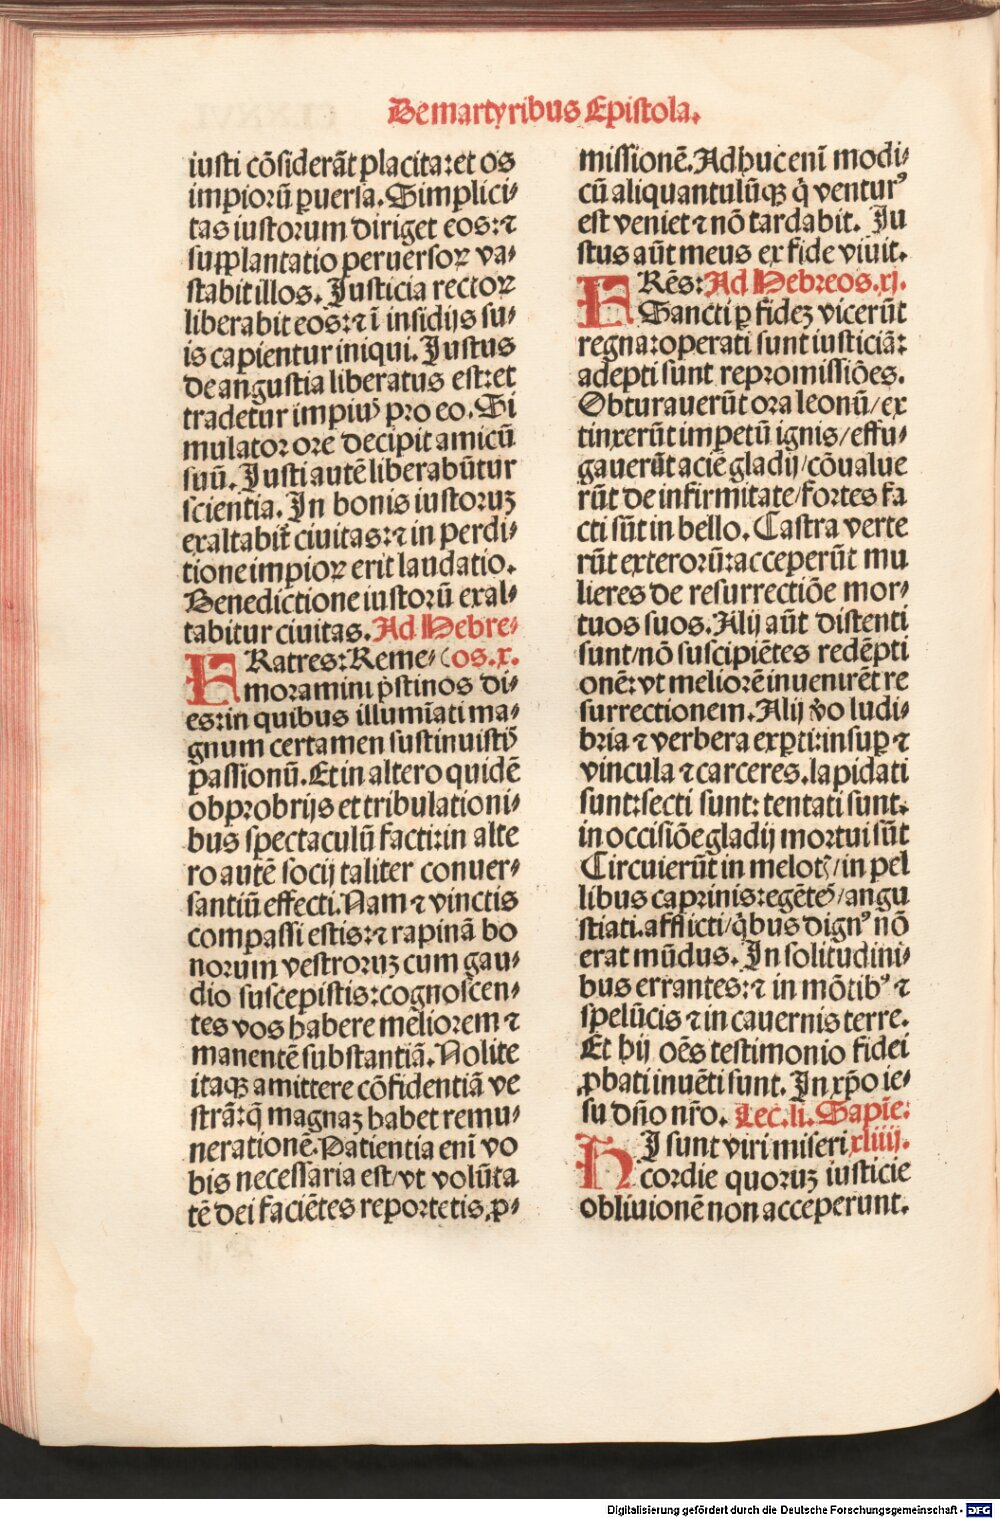 De martyribus Epistola.
iusti cōsiderāt placita: et os
impiorū ꝑuersa. Simplici⸗
tas iustorum diriget eos: ⁊
supplantatio peruersoꝝ va⸗
stabit illos. Justicia rectoꝝ
liberabit eos: ⁊ ī insidijs su⸗
is capientur iniqui. Justus
de angustia liberatus est: et
tradetur impiꝰ pro eo. Si
mulator ore decipit amicū
suū. Justi autē liberabūtur
scientia. In bonis iustoruꝫ
exaltabit̄ ciuitas: ⁊ in perdi⸗
tione impioꝝ erit laudatio.
Benedictione iustorū exal⸗
tabitur ciuitas. Ad Hebre⸗
FRatres: Reme⸗ (os. x.
moramini p̄stinos di⸗
es: in quibus illumīati ma⸗
gnum certamen sustinuistꝭ
passionū. Et in altero quidē
obprobrijs et tribulationi⸗
bus spectaculū facti: in alte
ro autē socij taliter conuer⸗
santiū effecti. Nam ⁊ vinctis
compassi estis: ⁊ rapinā bo
norum vestroruꝫ cum gau⸗
dio suscepistis: cognoscen⸗
tes vos habere meliorem ⁊
manentē substantiā. Nolite
itaqꝫ amittere cōfidentiā ve
strā: q̄ magnaꝫ habet remu⸗
nerationē. Patientia enī vo
bis necessaria est/ vt volūta
tē dei faciētes reportetis ꝓ⸗
missionē. Adhuc enī modi⸗
cū aliquantulūqꝫ q̇ venturꝰ
est veniet ⁊ nō tardabit. Ju
stus aūt meus ex fide viuit.
FRēs: Ad Hebreos. xj.
Sancti ꝑ fideꝫ vicerūt
regna: operati sunt iusticiā:
adepti sunt repromissiōes.
Obturauerūt ora leonū/ ex
tinxerūt impetū ignis/ effu⸗
gauerūt aciē gladij/ cōualue
rūt de infirmitate/ fortes fa
cti sūt in bello. Castra verte
rūt exterorū: acceperūt mu
lieres de resurrectiōe mor⸗
tuos suos. Alij aūt distenti
sunt/ nō suscipiētes redēpti
onē: vt meliorē inuenirēt re
surrectionem. Alij v̄o ludi⸗
bria ⁊ verbera exꝑti: insuꝑ ⁊
vincula ⁊ carceres. lapidati
sunt: secti sunt: tentati sunt.
in occisiōe gladij mortui sūt
Circuierūt in melotꝭ/ in pel
libus caprinis: egētes/ angu
stiati. afflicti/ q̇bus dignꝰ nō
erat mūdus. In solitudini⸗
bus errantes: ⁊ in mōtibꝰ ⁊
spelūcis ⁊ in cauernis terre.
Et hij oēs testimonio fidei
ꝓbati inuēti sunt. In xp̄o ie⸗
su dn̄o nr̄o. Lec. li. Sapīe:
HI sunt viri miseri xliiij.
cordie quoruꝫ iusticie
obliuionē non acceperunt.
Digitalisierung gefördert durch die Deutsche Forschungsgemeinschaft - DFG